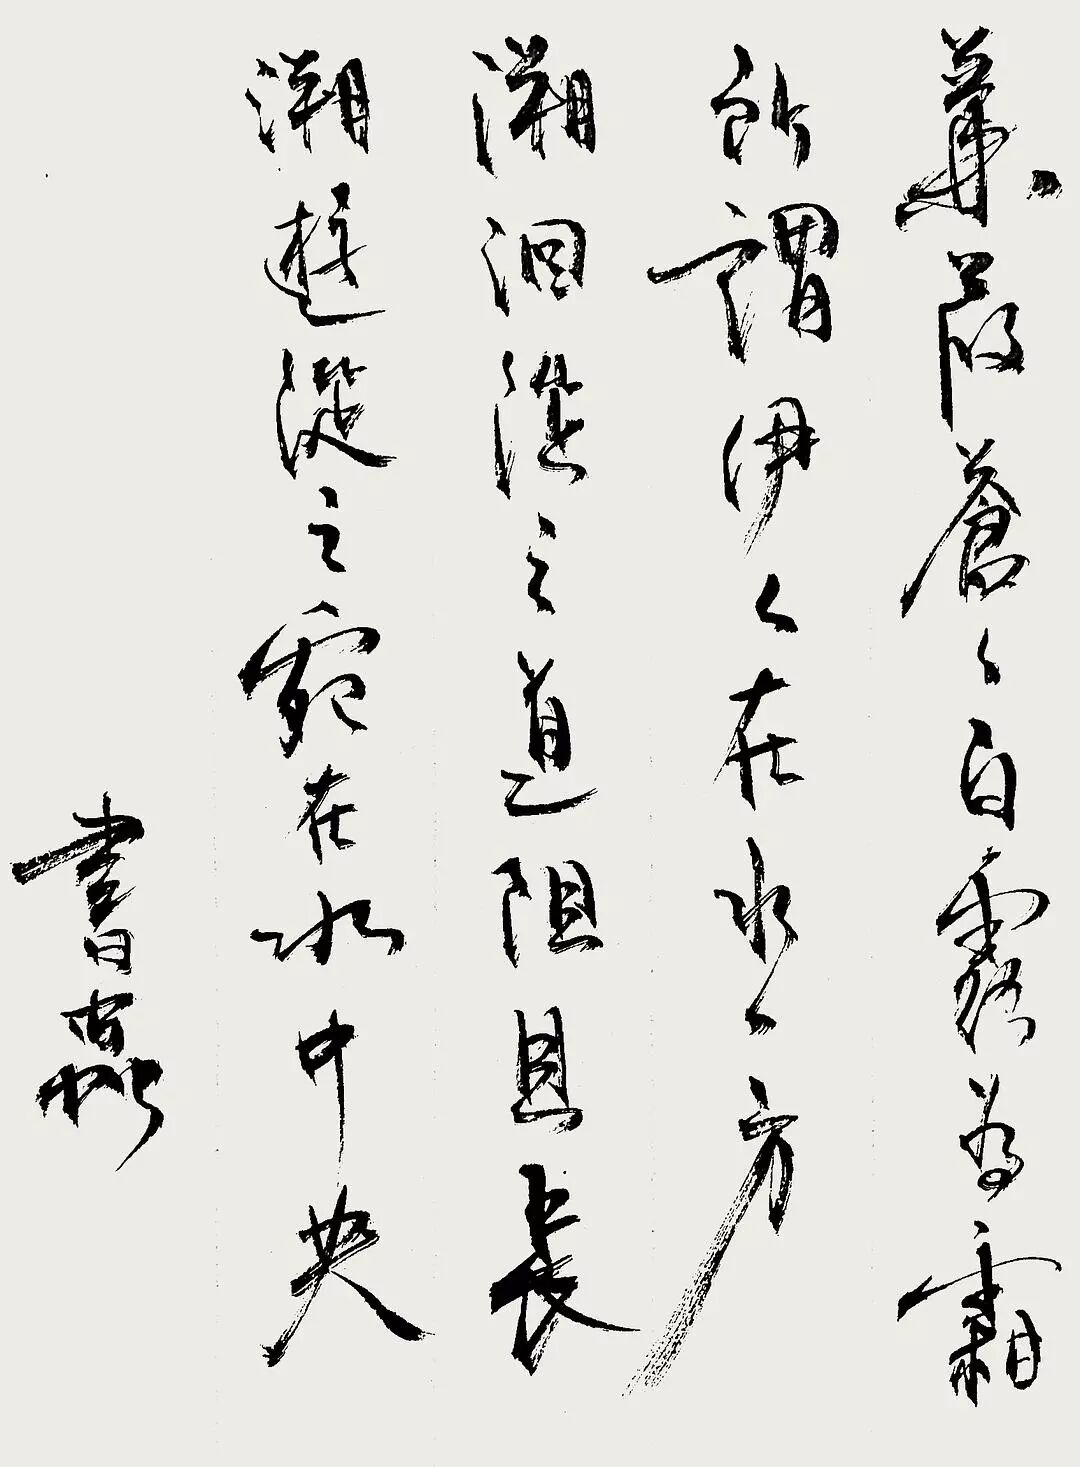 蒹葭蒼々白露為霜
所謂伊人在水一方
溯洄從之道阻且長
溯遊從之宛在水中央
書